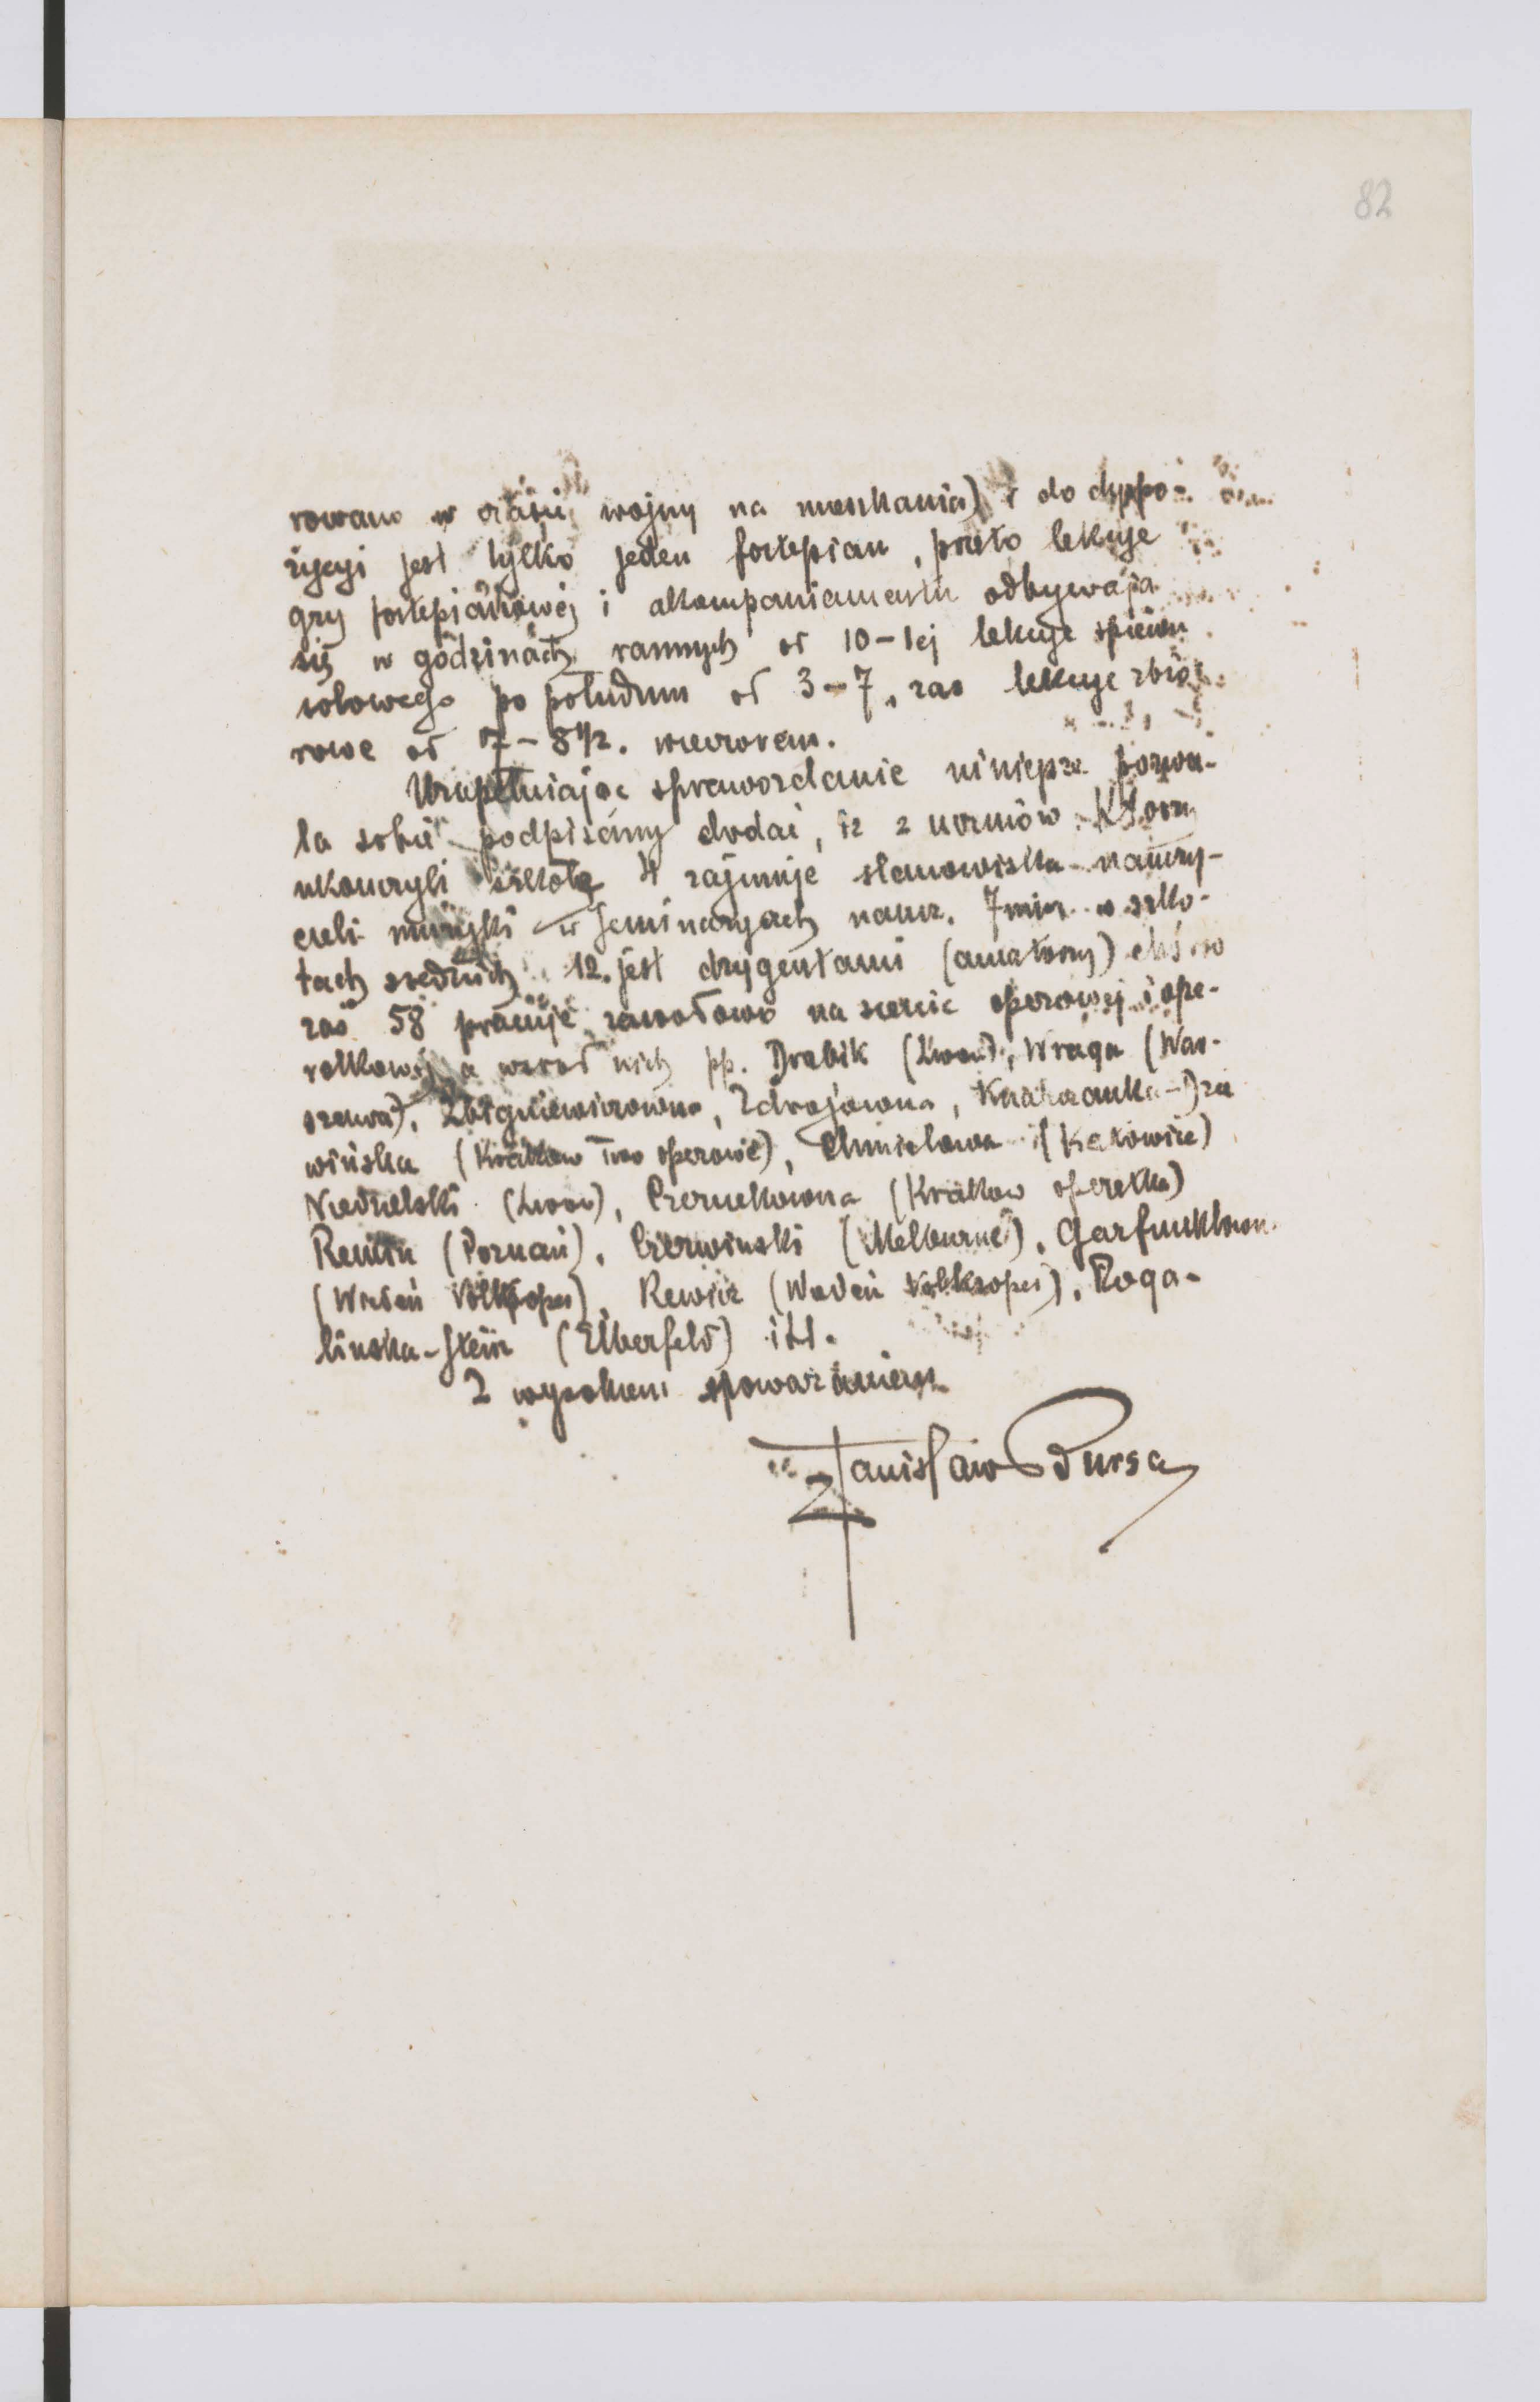 82
rowano w czasie wojny na mieszkania) i do dyspo-
zycyi jest tylko jeden fortepian, przeto lekcye
gry fortepianowej i akompaniamentu odbywają
się w godzinach rannych od 10-1ej lekcye śpiewu
solowego po południu od 3-7, zaś lekcye zbio-
rowe od 7-8 1/2. wieczorem.
Uzupełniając sprawozdanie niniejsze pozwa-
la sobie podpisany dodać, iż z uczniów którzy
ukończyli szkołę 4 zajmuje stanowiska nauczy-
cieli muzyki w seminaryach naucz. 7miu w szko-
łach średnich 12. jest dyrygentami (amatorzy)
zaś 58 pracuje zawodowo na scenie operowej i ope-
retkowej a wśród nich pp. Drabik (Lwów), Wraga (War-
szawa), Zbigniewiczowna, Zdrojowna,
wińska (Kraków Two operowe), Chmielowa (Katowice)
Niedzielski (Lwów), Czernekówna (Krakow operetka)
(Poznań), Czerwinski (Melburne), Garfunklown.
(Wiedeń Volksoper), Rewicz (Wiedeń Volksoper), Roga-
linska-Stein (Elberfeld) itd.
Z wysokiem spoważaniem
Stanisław Bursa